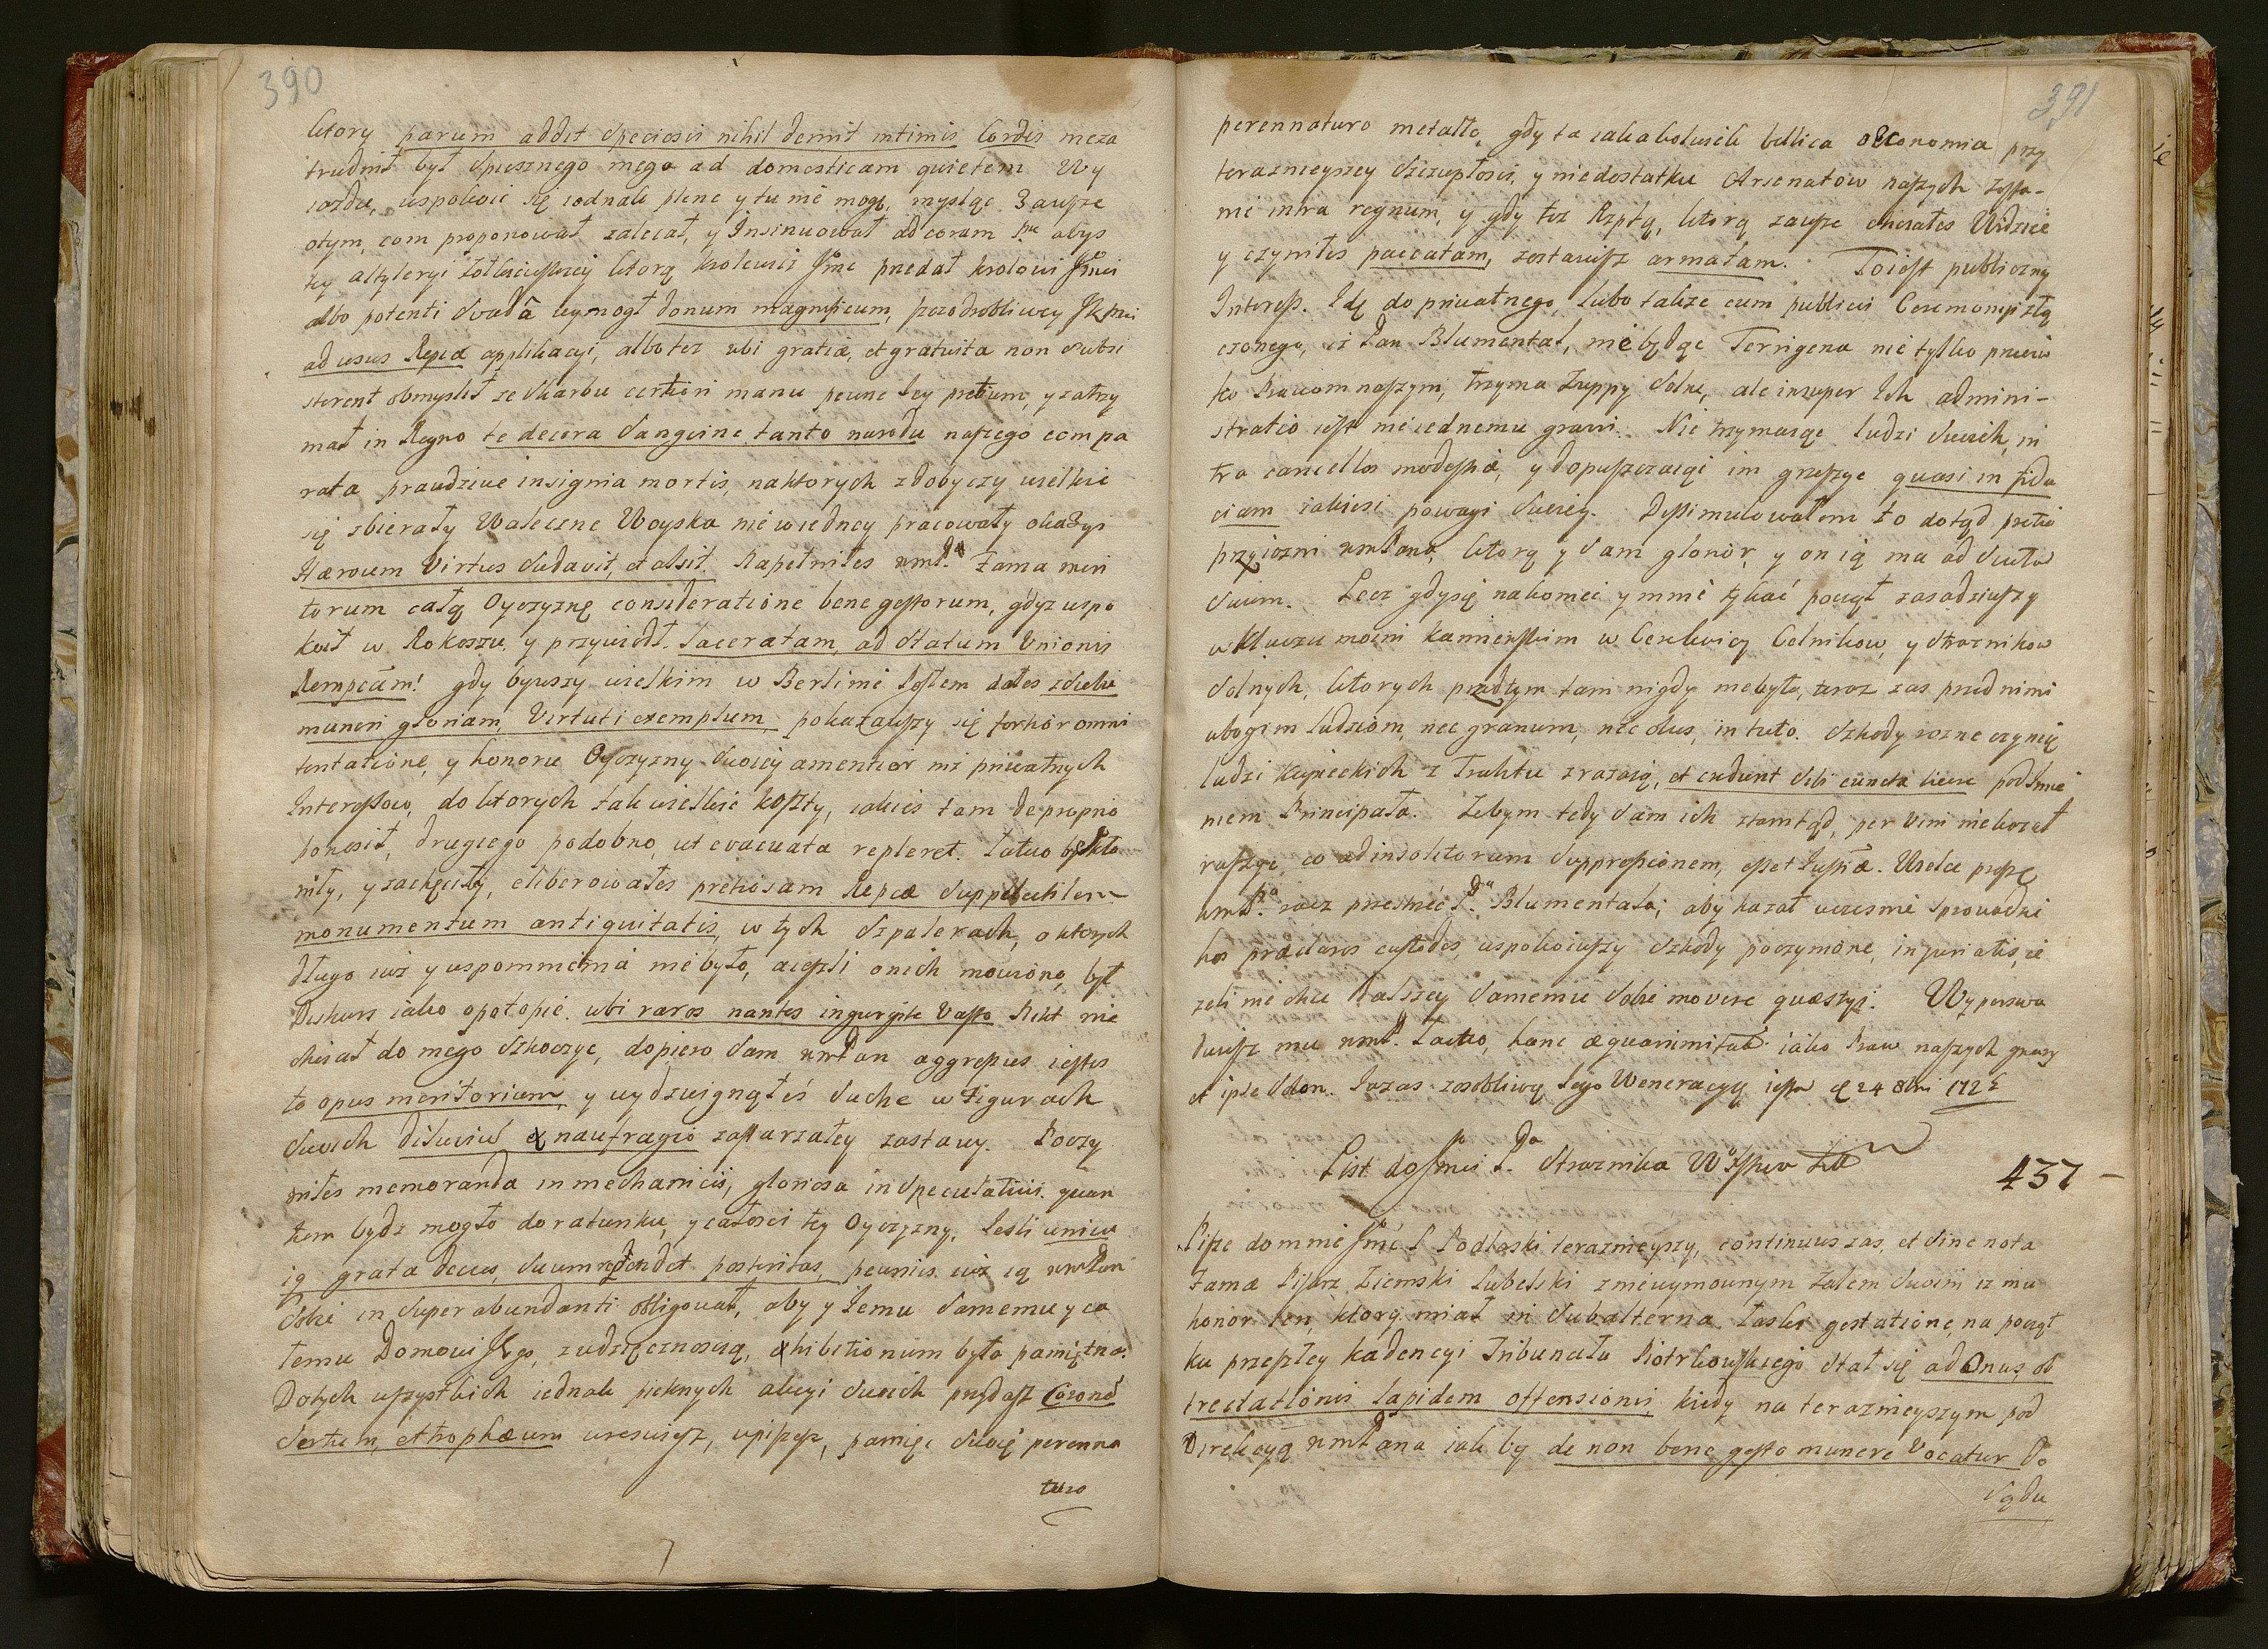 390
ktory parum addit speciosis nihil demit intimis Cordis nieza
trudnił był spiesznego mego ad domesticam quietem Wy
iazdu, uspokoic się iednak plene y tu nie mogę, mysląc Zausze
otym, com proponował zalecał, y Insinuował ad coram abys
tey altyleryi Zołkiewskiey ktorą krolewic Jmc przedał krolowi Jmci
albo potenti Svadâ wymogł donum magnificum, przodobliwey
ad usus Reipcæ applikacyi, albo tez ubi gratiæ, et gratuita non subsi
sterent obmyslił ze skarbu certiori manu pewne Jey pretium, y zatrzy
mał in Regno te decora Sanguine tanto narodu naszego compa
rata prawdziwe insignia mortis, naktorych zdobyczy wielkie
się zbierały Waleczne Woyska nie w iedney pracowały okazyi
Hæroum Virtus Sudavit, et alsit. Napełniłes Fama meri
torum całą Oyczyznę consideratione bene gestorum, gdyz uspo
koił w Rokoszu, y przywiodł laceratam, ad statum Unionis
Rempcam! gdy bywszy wielkim w Berlinie Posłem dałes
muneri gloriam, Virtuti exemplum, pokazawszy się fortior omni
tentatione, y honoru Oyczyzny Swoiey amentior niz priwatnych
Interessow, do ktorych tak wielkie koszty, iakies tam de proprio
ponosił, drugiego podobno, ut evacuata repleret. Łatwo by skło
niły, y zachęciły, eliberowałes pretiosam Reipcæ Suppellectilem
monumentum antiquitatis, w tych Szpalerach, o ktorych
długo iuz y uspomnienia nie było, a ieszli onich mowiono, był
Diskurs iako opotopie. ubi raros nantes in gurgite Vasto Nikt nie
chciał do niego Skoczyc, dopiero Sam aggressus iestes
to opus meritorium, y wydzwignąłeś Suche w Figurach
Swich diluvio & naufragio zastarzałey zastawy. Poczy
niłes memoranda in mechanicis, gloriosa in Speculativis quan
tum bydz mogło do ratunku, y całosci tey Oyczyzny. Jesli
grata decus, suum rependet posteritas, pewnies iuz ią
Sobie in Super abundanti obligował, aby y Jemu Samemu y ca
łemu Domowi Jego, zwdzięcznoscią, exhibitionum była pamiętna.
Dotych wszystkich iednak pieknych akcyi Swoich przydasz Coronæ
Sertum, et trophæum wiesiesz, upiszesz, pamięc Swoię perenna
turo
391
perennaturo metallo, gdy ta iakakolwiek bellica oeconomia przy
teraznieyszey Sczupłosci, y niedostatku Arsenałow naszych zosta-
nie intra regnum, y gdy tez Rzptą, ktorą zausze chciałes Widziec
y czyniłes paccatam, zostawisz armatam. Toiest publiczny
Interess. Idę do priwatnego, lubo takze cum publicis Ceremonyi złą
czonego, iz Pan Blumental, nie będąc Terrigena nie tylko przeciw
ko Prawom naszym, trzyma Zuppy Solne, ale insuper Ich admini-
stratio iest nie iednemu gravis. Nie trzymaiąc ludzi Swoich, in
tra cancellos modestiæ, y dopuszczaiąc im grzeszyc quasi in fidu
ciam iakieisi powagi Swoiey. Dissimulowałem to dotąd pretio
przyiazni ktorą y Sam glorior, y on ią ma ad Scutum
Suum. Lecz gdy się nakoniec y mnie tykać począł zasadziwszy
w Kluczu moim Kamienskim w Cerekwicy Celnikow, y Straznikow
Solnych, ktorych przedtym tam nigdy niebyło, teraz zas przed nimi
ubogim ludziom, nec granum, nec olus, in tuto. Szkody rozne czynią
ludzi kupieckich z Traktu zrażaią, et credunt Sibi cuncta licere pod Imie
niem Principała. Zebym tedy Sam ich ztamtąd, per vim nie kazał
ruszyc, co ad insolitorum Suppressionem, esset Justitiæ. Wielce proszę
racz przestrzec Blumentala, aby kazał wczesnie sprowadzic
hos præclaros custodes, uspokoiwszy Szkody poczynione, iniuriatis, ie
zeli nie chce dalszey Samemu Sobie movere quæstyi. Wyperswa
duiesz mu łatwo, hanc æquanimitatem iako Praw naszych gnary
et ipse Solon. Ja zas zosobliwą Jego Weneracyą iestem d 24 8bri 172
List do Jmci Straznika
437
Pisze do mnie Jmc P Podlaski teraznieyszy, continuus zas, et sine nota
Famæ Pisarz Ziemski Lubelski z nieuymownym zalem Swoim iz mu
honor ten, ktorą miał in Subalterna Laski gestatione, na począt
ku przeszłey kadencyi Tribunału Piotrkowskiego Stał się ad onus, ob
trectationis lapidem offensionis kiedy na teraznieyszym pod
Direkcyą iak by de non bene gesto munere Vocatur do
Sądu